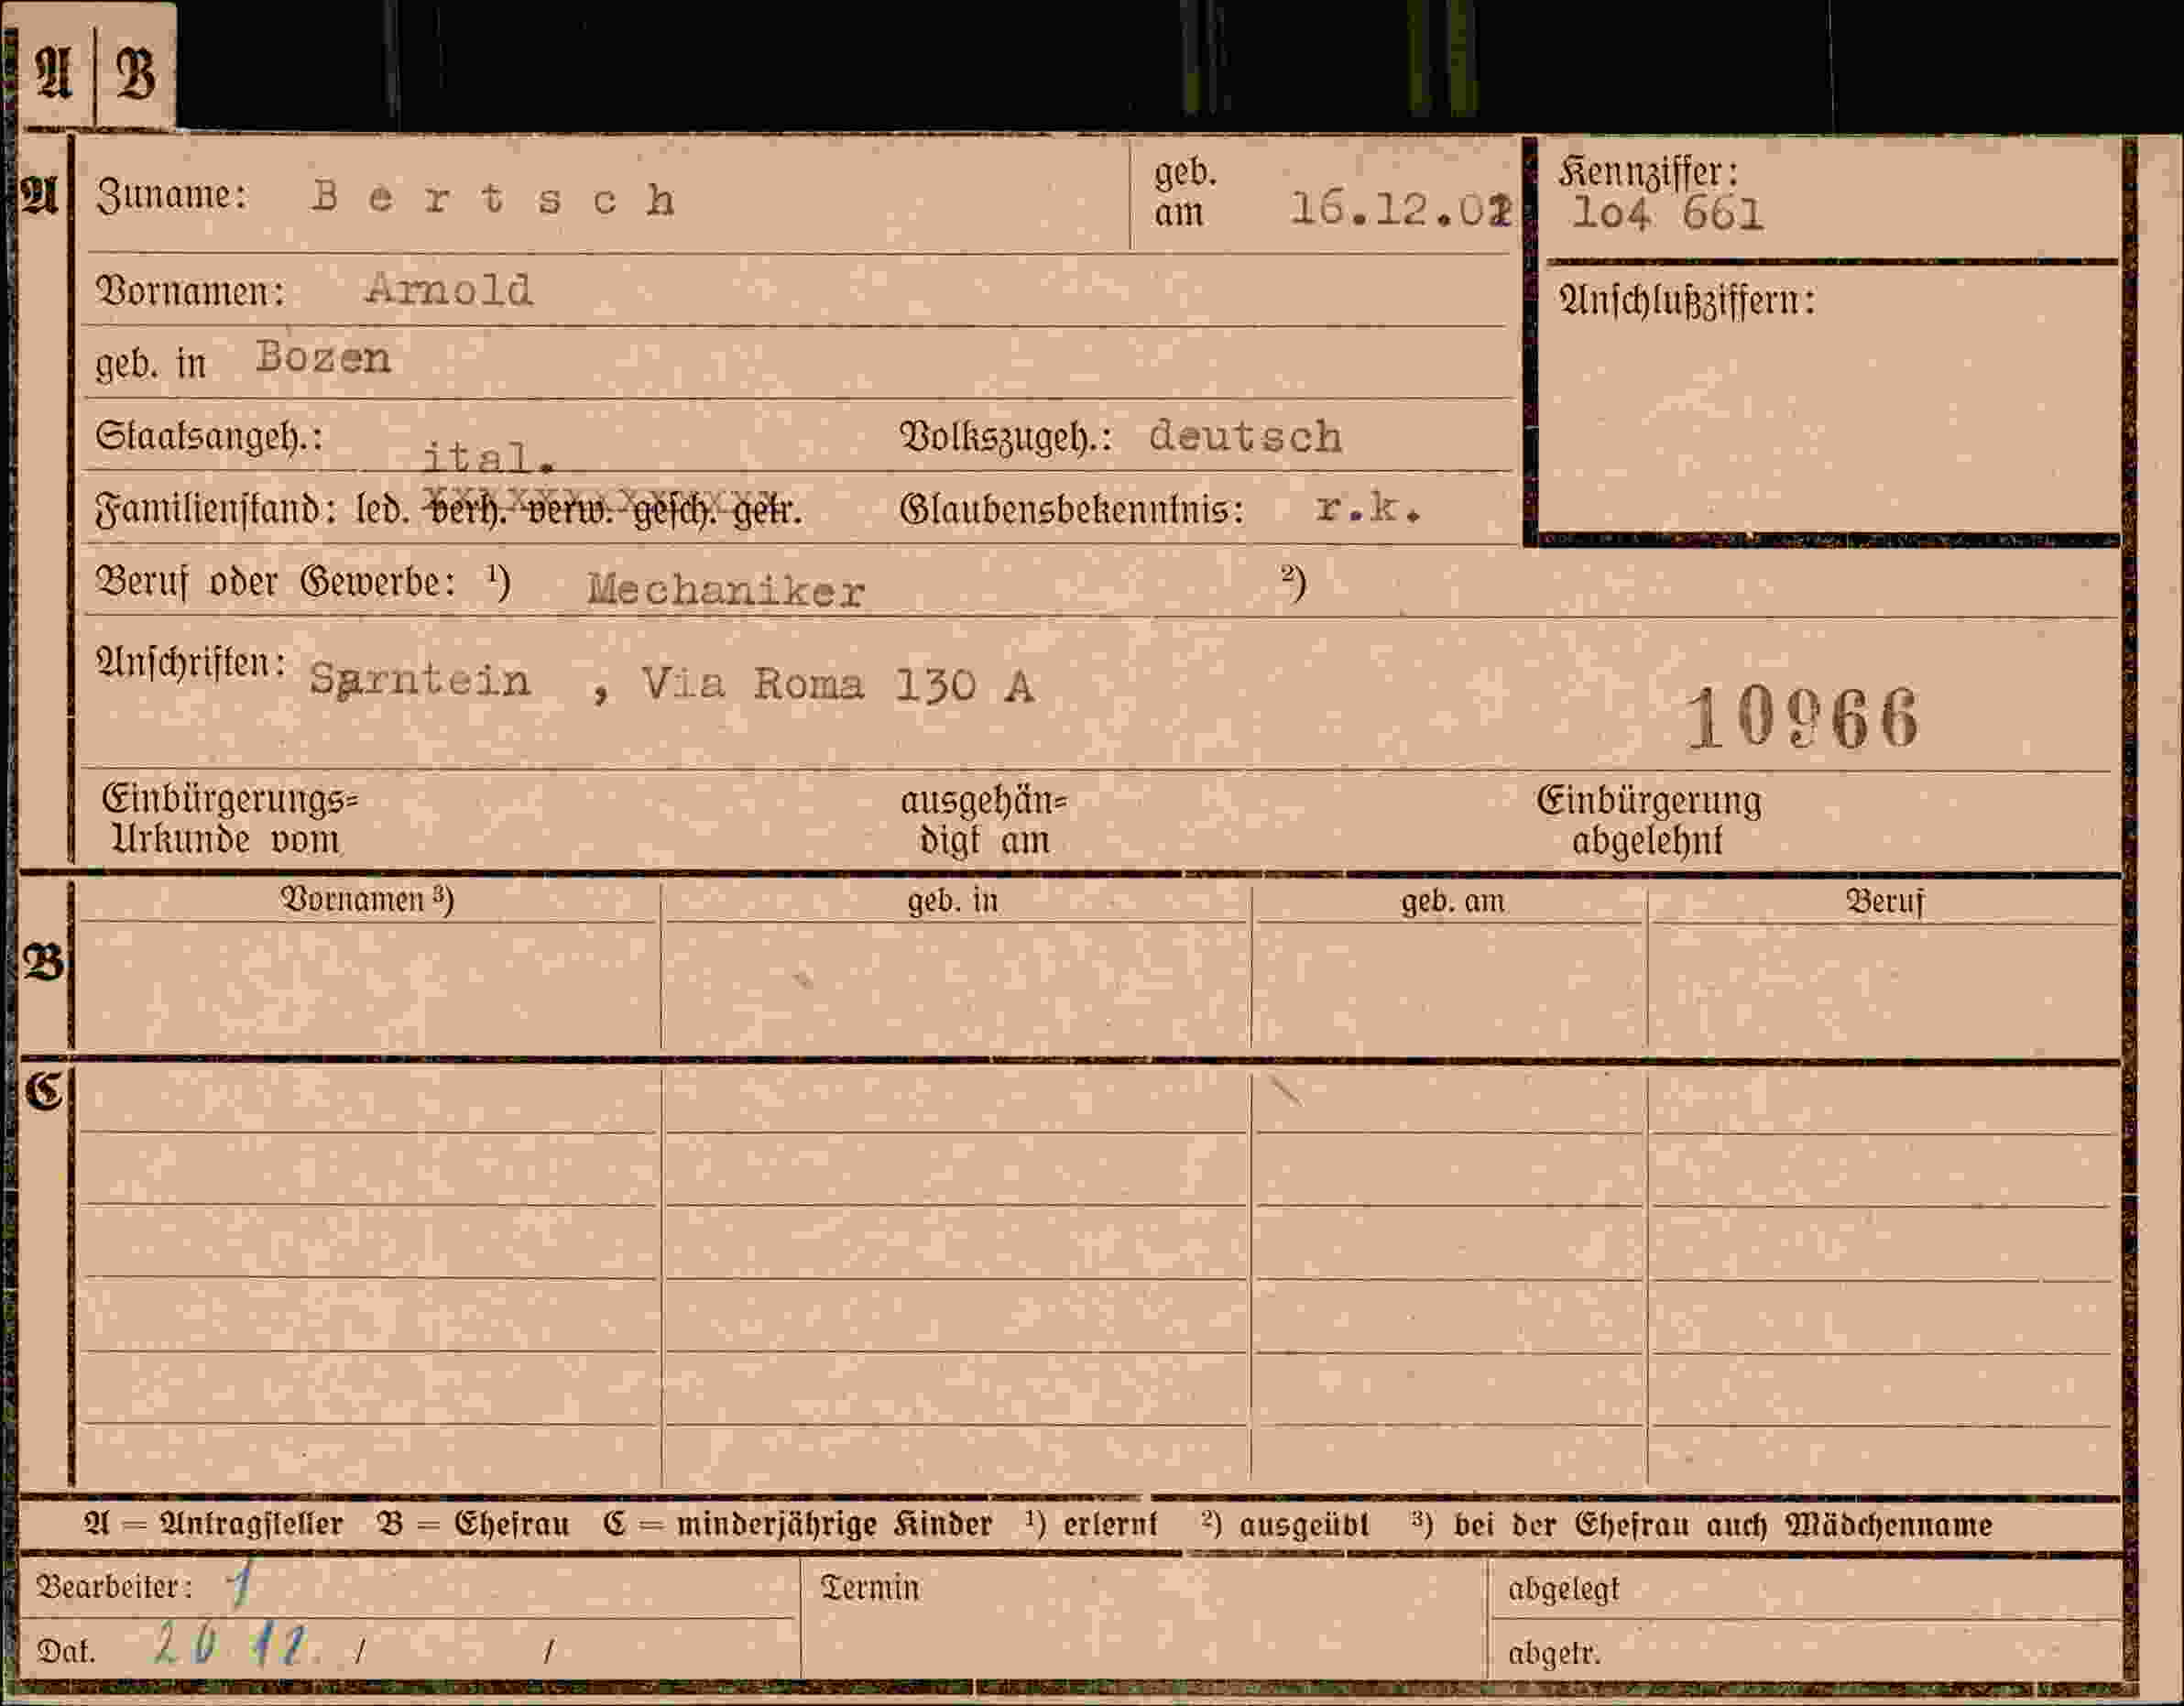 A B
A Zuname: Bertsch geb. am Kennziffer:
104 661
Vornamen: Arnold Anschlußziffern:
geb. in Bozen
Staatsangeh.: ital. Volkszugeh.: deutsch
Familienstand: led. verh. verw. gesch. getr. Glaubensbekenntnis: r.k.
Beruf oder Gewerbe: ¹) Mechaniker ²)
Anschriften: Sarntein , Via Roma 130 A
10966
Einbürgerungs= ausgehän= Einbürgerung
Urkunde vom digt am abgelehnt
Vornamen ³) geb. in geb. am Beruf
B
C
A = Antragsteller B = Ehefrau C = minderjährige Kinder ¹) erlernt ²) ausgeübt ³) bei der Ehefrau auch Mädchenname
Bearbeiter: 1 Termin abgelegt
Dat. 20 12. / / abgetr.